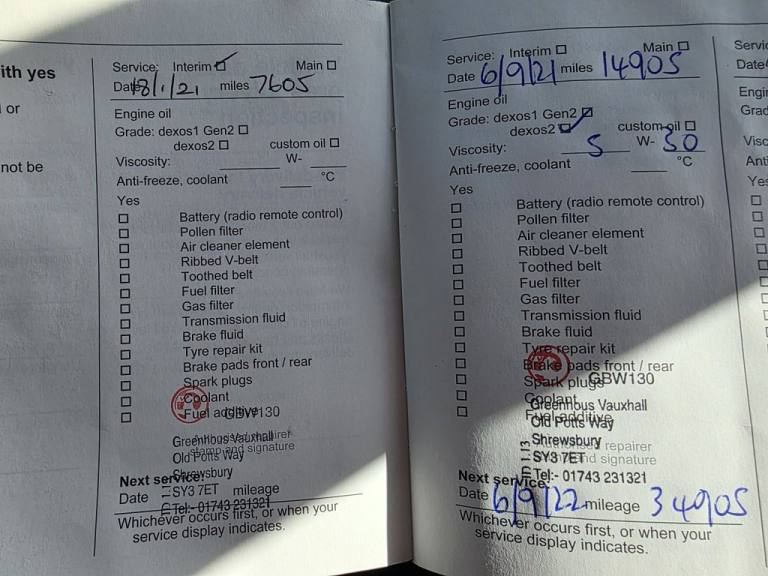 ith yes
or
not be
Service: Interim Main
Date 18/1/21 miles 7605
Engine oil
Grade: dexos1 Gen2
dexos2 custom oil
Viscosity: W-
Anti-freeze, coolant °C
Yes
Battery (radio remote control)
Pollen filter
Air cleaner element
Ribbed V-belt
Toothed belt
Fuel filter
Gas filter
Transmission fluid
Brake fluid
Tyre repair kit
Brake pads front / rear
Spark plugs
Coolant
Fuel additive GBW130
Greenhous Vauxhall
Old Potts Way
stamp and signature
Shrewsbury
Next service:
SY3 7ET
Date mileage
Tel:- 01743 231321
Whichever occurs first, or when your
service display indicates.
Service: Interim Main
Date 6/9/21 miles 14905
Engine oil
Grade: dexos1 Gen2
dexos2 custom oil
Viscosity: 5 W- 30
Anti-freeze, coolant °C
Yes
Battery (radio remote control)
Pollen filter
Air cleaner element
Ribbed V-belt
Toothed belt
Fuel filter
Gas filter
Transmission fluid
Brake fluid
Tyre repair kit
Brake pads front / rear
Spark plugs GBW130
Coolant
Greenhous Vauxhall
Fuel additive
Old Potts Way
Shrewsbury repairer
SY3 7ET and signature
Next service:
Tel:- 01743 231321
Date 6/9/22 mileage 34905
Whichever occurs first, or when your
service display indicates.
Servic
Date
Engi
Grad
Visc
Ant
Yes